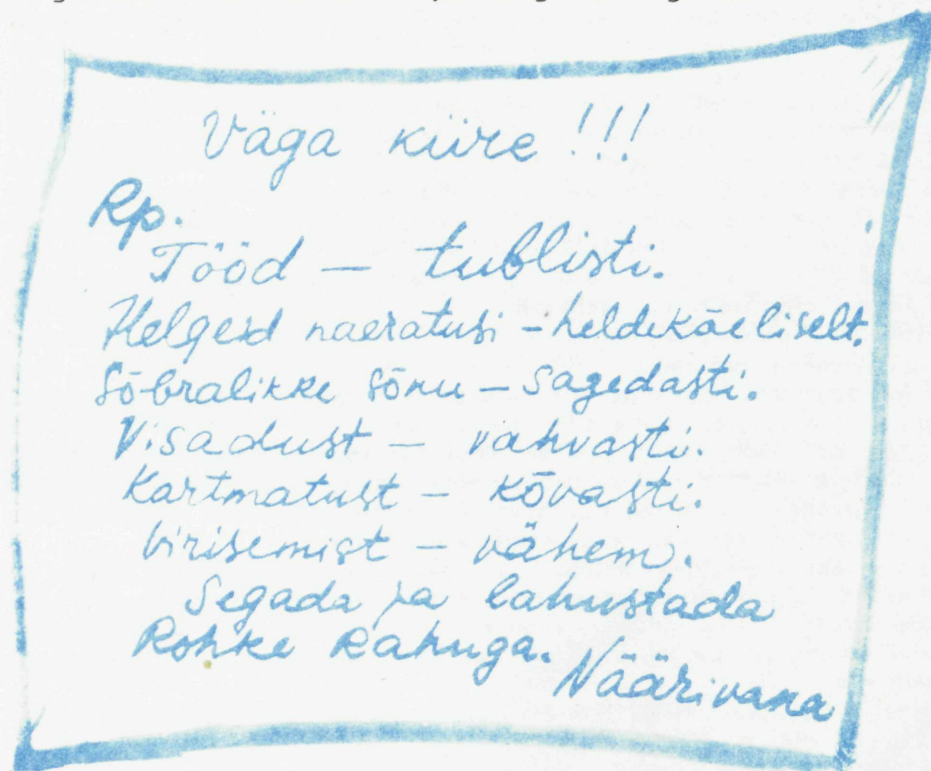 Väga kiire!!!
Rp.
Tööd — tublisti.
Helgeid naeratusi - heldekäeliselt.
Sõbralikke sõnu - sagedasti.
Visadust - vahvasti.
Kartmatust - kõvasti.
Virisemist - vähem.
Segada ja lahustada
Rohke Rahuga.
Näärivana